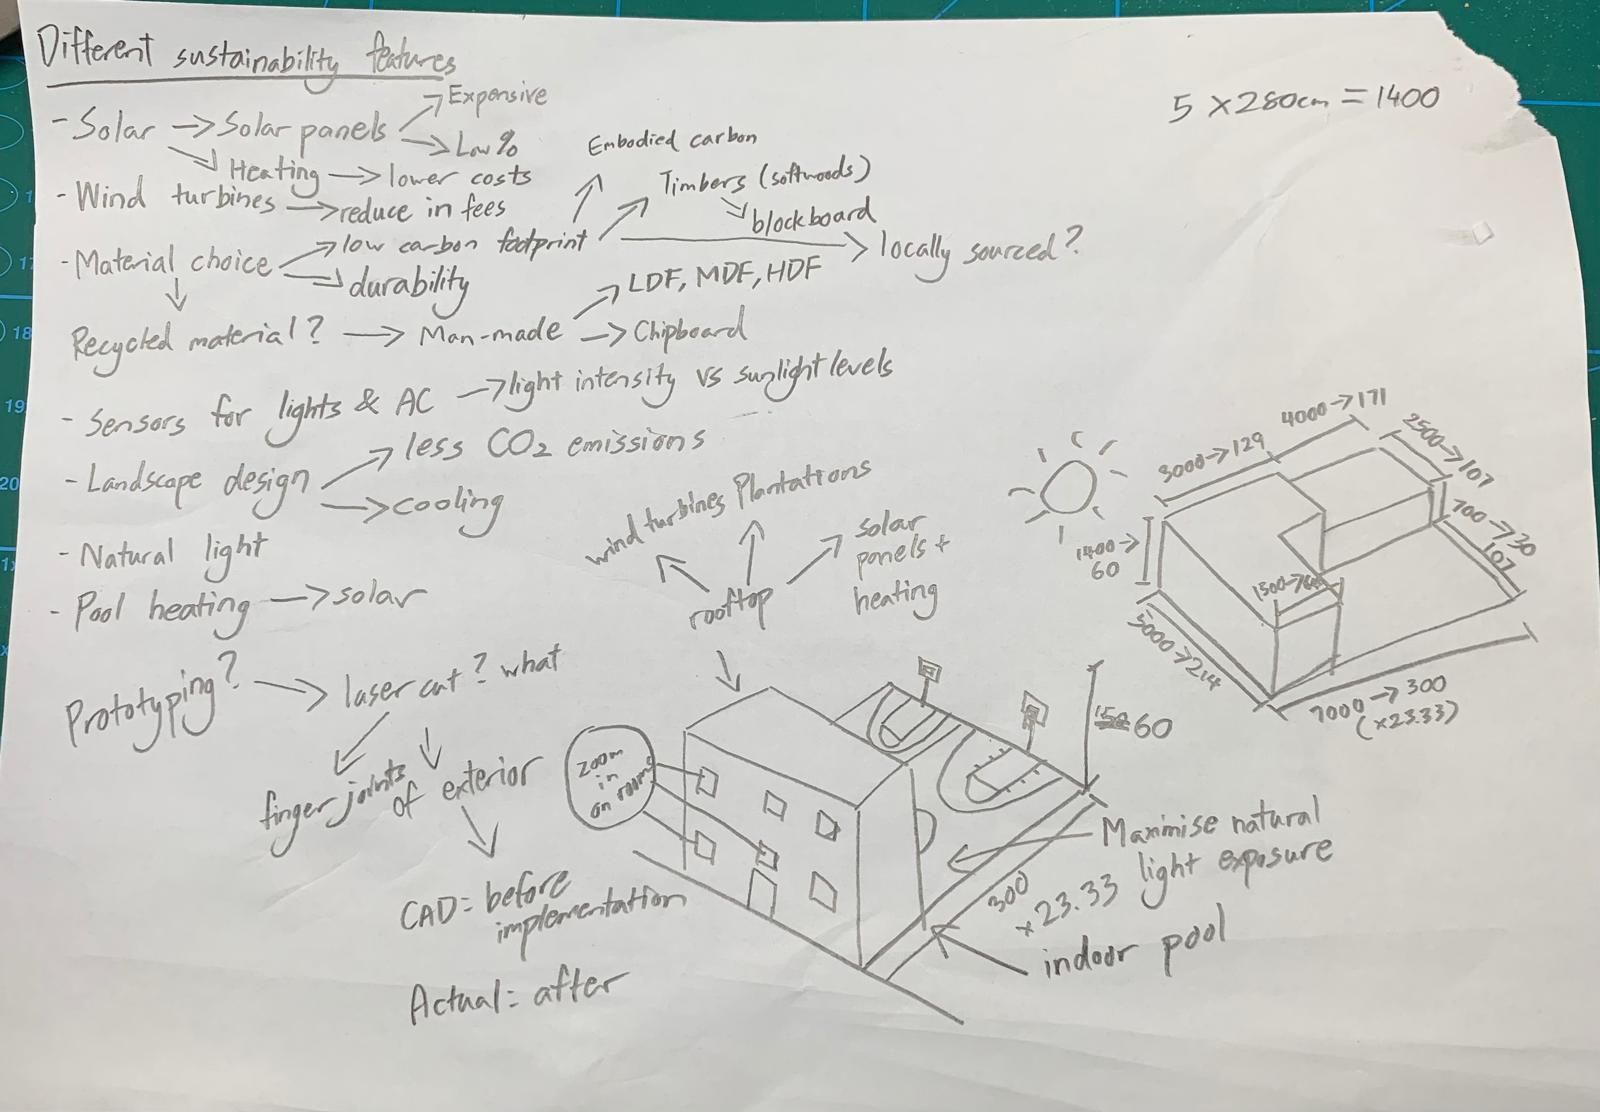 Different sustainability features
5 × 280cm = 1400
- Solar → Solar panels → Expensive
→ Low %
→ Heating → lower costs
- Wind turbines → reduce in fees
- Material choice → low carbon footprint → Embodied carbon
→ Timbers (softwoods)
→ blockboard
→ locally sourced?
→ durability
Recycled material? → Man-made → LDF, MDF, HDF
→ Chipboard
- Sensors for lights & AC → light intensity vs sunlight levels
- Landscape design → less CO2 emissions
→ cooling
- Natural light
- Pool heating → solar
Prototyping? → laser cut? what
finger joints
of exterior
CAD = before
implementation
Actual = after
rooftop
wind turbines
Plantations
solar
panels +
heating
zoom
in
on rooms
60
Maximise natural
light exposure
300
× 23.33
indoor pool
3000→129
4000→171
2500→107
700→30
107
1400→
60
5000→214
7000→300
(×23.33)